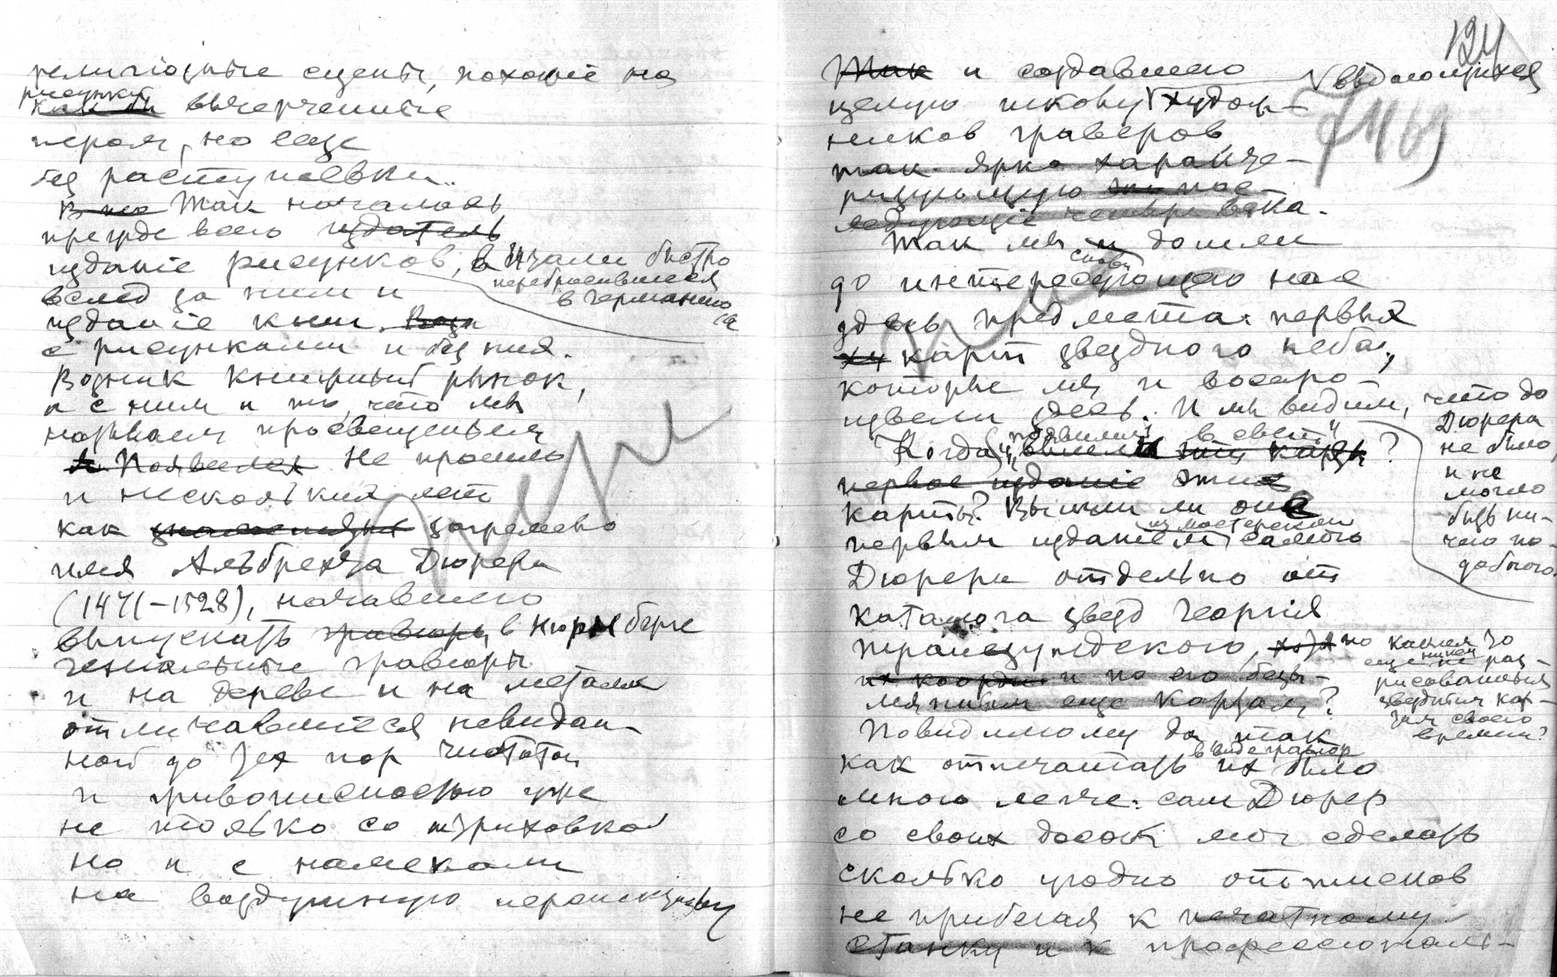 религiозные сцены, похожiе на
рисунки
как бы вычерченные
пером, но еще
без растушевки.
Так началось
прежде всего издатель
изданiе рисунков, в Италии быстро
перебросившееся
в Германiю
вслед за ним и
изданiе книг
с рисунками и без них.
Возник книжный рынок,
и с ним и то, что мы
называем просвещенiем
Появился Не прошло
и нескольких лет
как загремело
имя Альбрехта Дюрера
(1471-1528), начавшего
выпускать гравюры в Нюрнберге
генiальные гравюры
и на дереве и на металле
отличавшiеся невидан-
ной до тех пор чистотой
и живописностью уже
не только со штриховкой
но и с намеками
на воздушную перспективу
124
Так и создавшего
целую школу выдающихся худож-
ников граверов
так ярко характе-
ризующую пос-
ледующiе четыре века.
Так мы и дошли
снова
до интересующего нас
здесь предмета: первых
карт звездного неба,
которые мы и воспро-
извели здесь. И мы видим, что до
Дюрера
не было,
и не
могло
быть ни-
чего по-
добного.
Когда появились в свет эти карты?
первое изданiе эти
карты? Вышли ли оне
из мастерской
первым изданiем самого
Дюрера отдельно от
каталога звезд Георгiя
Трапезундского, хотя по каким то
еще не раз-
рисованным
звездным кар-
там своего
времени?
и по его безы-
мянным еще картам?
Повидимому да, так
в виде гравюр
как отпечатать их было
много легче: сам Дюрер
со своих досок мог сделать
сколько угодно оттисков
не прибегая к печатному
станку и к профессиональ-